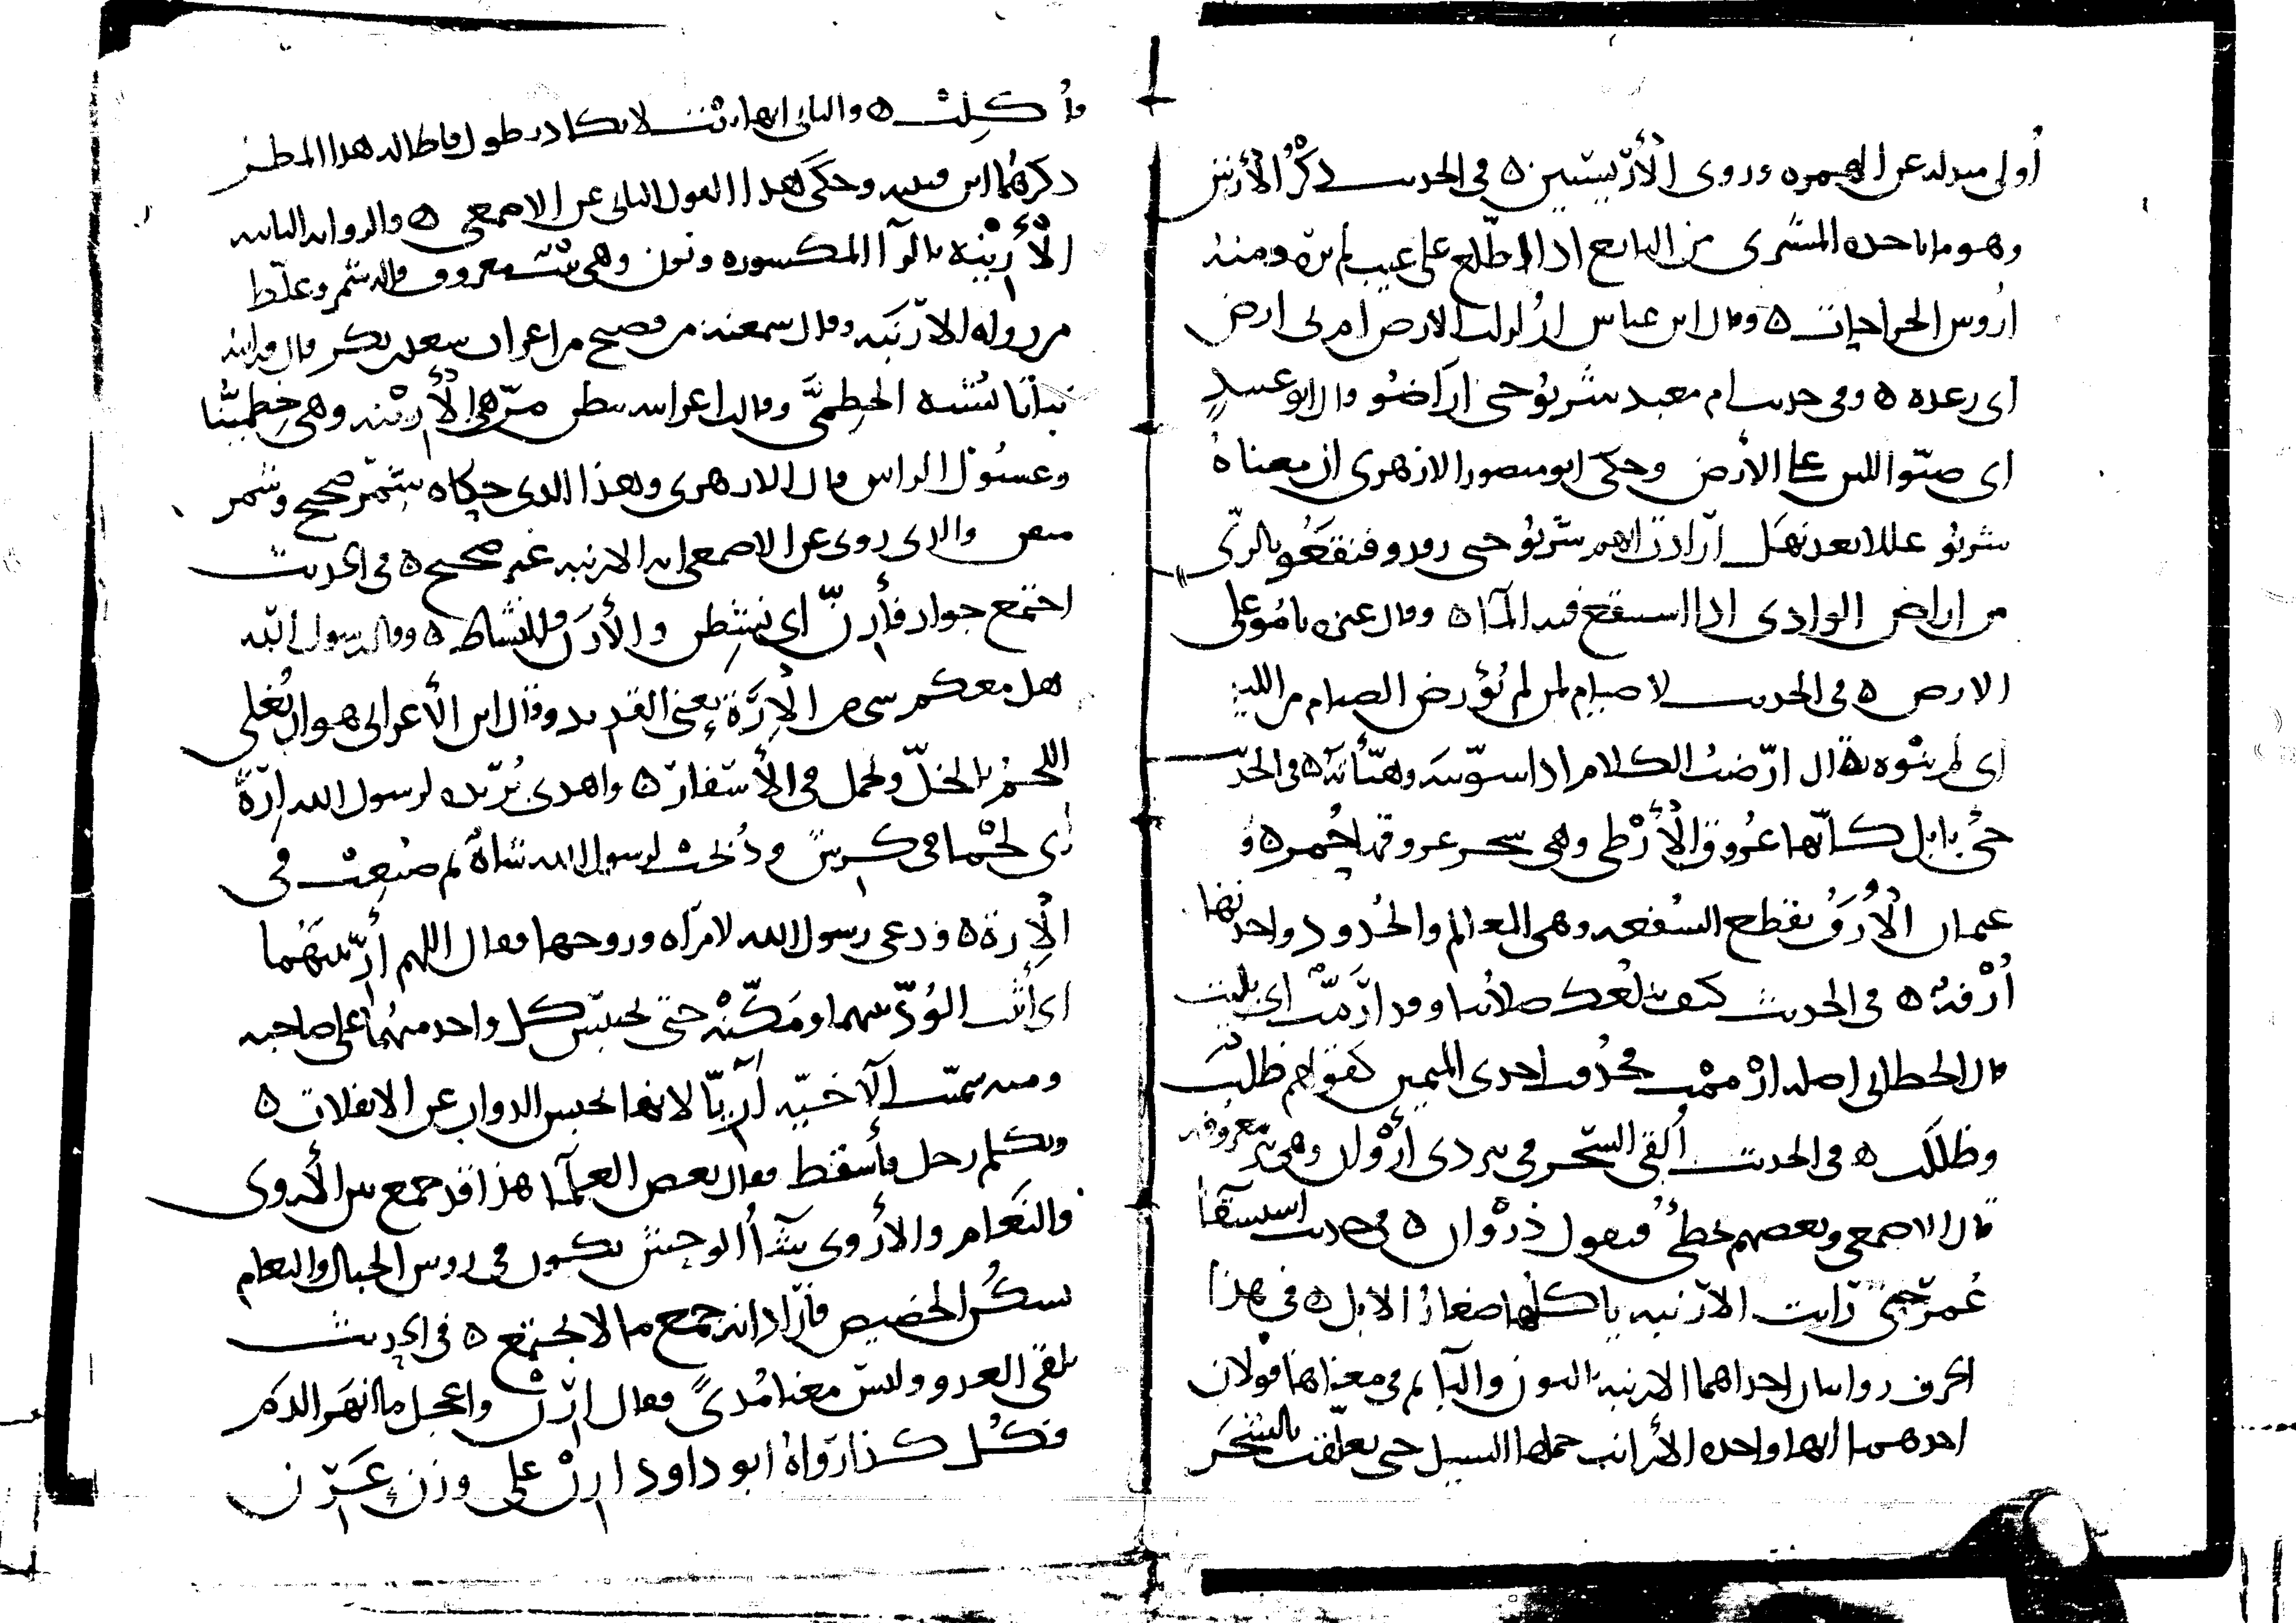 أولى مبدلة عن الهمزة وروى الأرّيسيين ٥ في الحديث ذكر الأرش
وهو ما ياخذه المشترى من البايع اذا اطّلع على عيب لم يره ومنه
اروش الجراحات ٥ وقال ابن عباس ازلزلت الارض ام بي ارض
اى رعدة ٥ وفي حديث ام معبد شربوا حتى اراضوا قال ابو عبيد
اى صبّوا اللبن على الأرض وحكى ابو منصور الازهرى ان معناه
شربوا عللا بعد نهل اراد انهم شربوا حتى رووا فنقعوا بالرّى
من اراض الوادى اذا استنقع فيه المآ ٥ وقال غيره ناموا على
الارض ٥ في الحديث لا صيام لمن لم يؤرض الصيام من الليل
اى لم ينوه يقال ارّضت الكلام اذا سوّيته وهيّأته ٥ في الحديث
جئ بابل كأنها عروق الأرطى وهي شجر عروقها حمر ٥ و
عثمان الأرف تقطع الشفعة وهي المعالم والحدود واحدتها
أرفة ٥ في الحديث كيف تبلغك صلاتنا وقد ارمت اى بليت
قال الخطابي اصله ارممت فحذف احدى الميمين كقولهم ظلت
وظللت ٥ في الحديث ألقى السحر في بئر ذى أروان وهي بئر معروفة
قال الاصمعي وبعضهم يخطئ فيقول ذروان ٥ في حديث استسقآ
عمر حتى رايت الارنبة ياكلها صغار الابل ٥ في هذا
الحرف روايتان احداهما الارنبة بالنون والبا ثم في معناها قولان
احدهما انها واحدة الأرانب حملها السيل حتى تعلقت بالشجر
فأكلت ٥ والثاني انها نبت لا يكاد يطول فاطاله هذا المطر
ذكرهما ابن قتيبة وحكى هذا القول الثاني عن الاصمعي ٥ والرواية الثانية
الأرينة بالرآ المكسورة ونون وهي نبت معروف قاله شمر وغلّط
من رواه الارنبة وقال سمعته من فصيح من اعراب سعد بن بكر قال ورايته
نباتا يشبه الخطمىّ وقالت اعرابية ببطن مرّ هي الأرينة وهي خطميّنا
وغسول الراس قال الازهرى وهذا الذى حكاه شمر صحيح وشمر
متقن والذى روى عن الاصمعي انه الارنبة غير صحيح ٥ في الحديث
اجتمع جوار فأرنّ اى نشطن والأرن النشاط ٥ وقال رسول الله
هل معكم شئ من الإرة يعنى القديد وقال ابن الأعرابي هو ان يغلى
اللحم بالخلّ ويحمل في الأسفار ٥ واهدى بريدة لرسول الله إرة
اى لحما في كرش وذبحت لرسول الله شاة ثم صنعت في
الإرة ٥ ودعى رسول الله لامرأة وزوجها فقال اللهم أرّ بينهما
اى أثبت الودّ بينهما ومكّنه حتى يحبس كل واحد منهما على صاحبه
ومنه سميت الآخيّة آريّا لانها تحبس الدواب عن الانفلات ٥
وتكلم رجل فأسقط فقال بعض العلمآ هذا قد جمع بين الأروى
والنعام والأروى شآ الوحش تكون في روس الجبال والنعام
تسكن الحضيض فأراد انه جمع ما لا يجتمع ٥ في الحديث
نلقى العدو وليس معنا مدى فقال ارن واعجل ما انهر الدم
فكل كذا رواه ابو داود ارن على وزن عرن